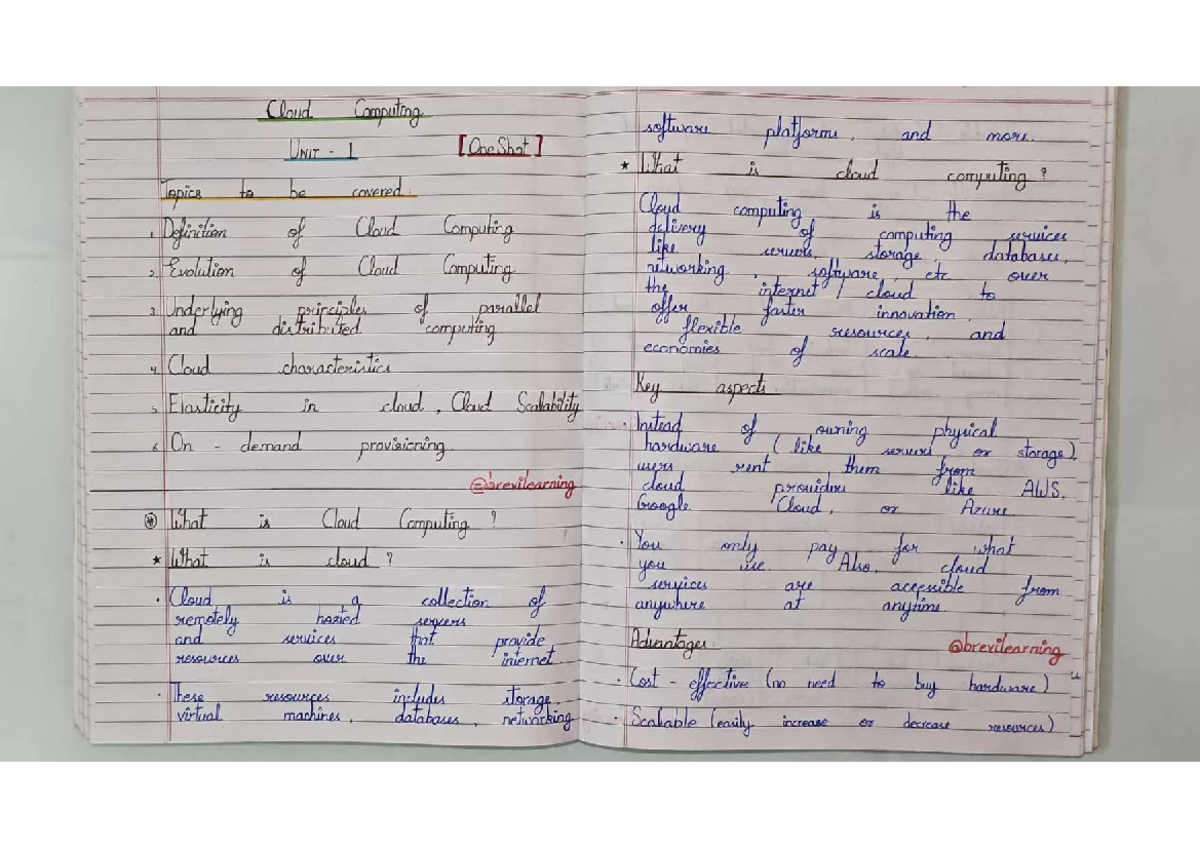 Cloud Computing
UNIT - 1 [One Shot]
Topics to be covered.
1. Definition of Cloud Computing
2. Evolution of Cloud Computing
3. Underlying principles of parallel
and distributed computing
4. Cloud characteristics
5. Elasticity in cloud, Cloud Scalability
6. On - demand provisioning
@brevilearning
What is Cloud Computing ?
★ What is cloud ?
• Cloud is a collection of
remotely hosted servers
and services that provide
resources over the internet
• These resources includes storage,
virtual machines, databases, networking
software platforms, and more.
★ What is cloud computing ?
Cloud computing is the
delivery of computing services
like servers, storage, databases,
networking, software, etc over
the internet / cloud to
offer faster innovation,
flexible resources, and
economies of scale.
Key aspects
• Instead of owning physical
hardware (like servers or storage),
users rent them from
cloud providers like AWS,
Google Cloud, or Azure.
• You only pay for what
you use. Also, cloud
services are accessible from
anywhere at anytime.
Advantages @brevilearning
• Cost - effective (no need to buy hardware)
• Scalable (easily increase or decrease resources)